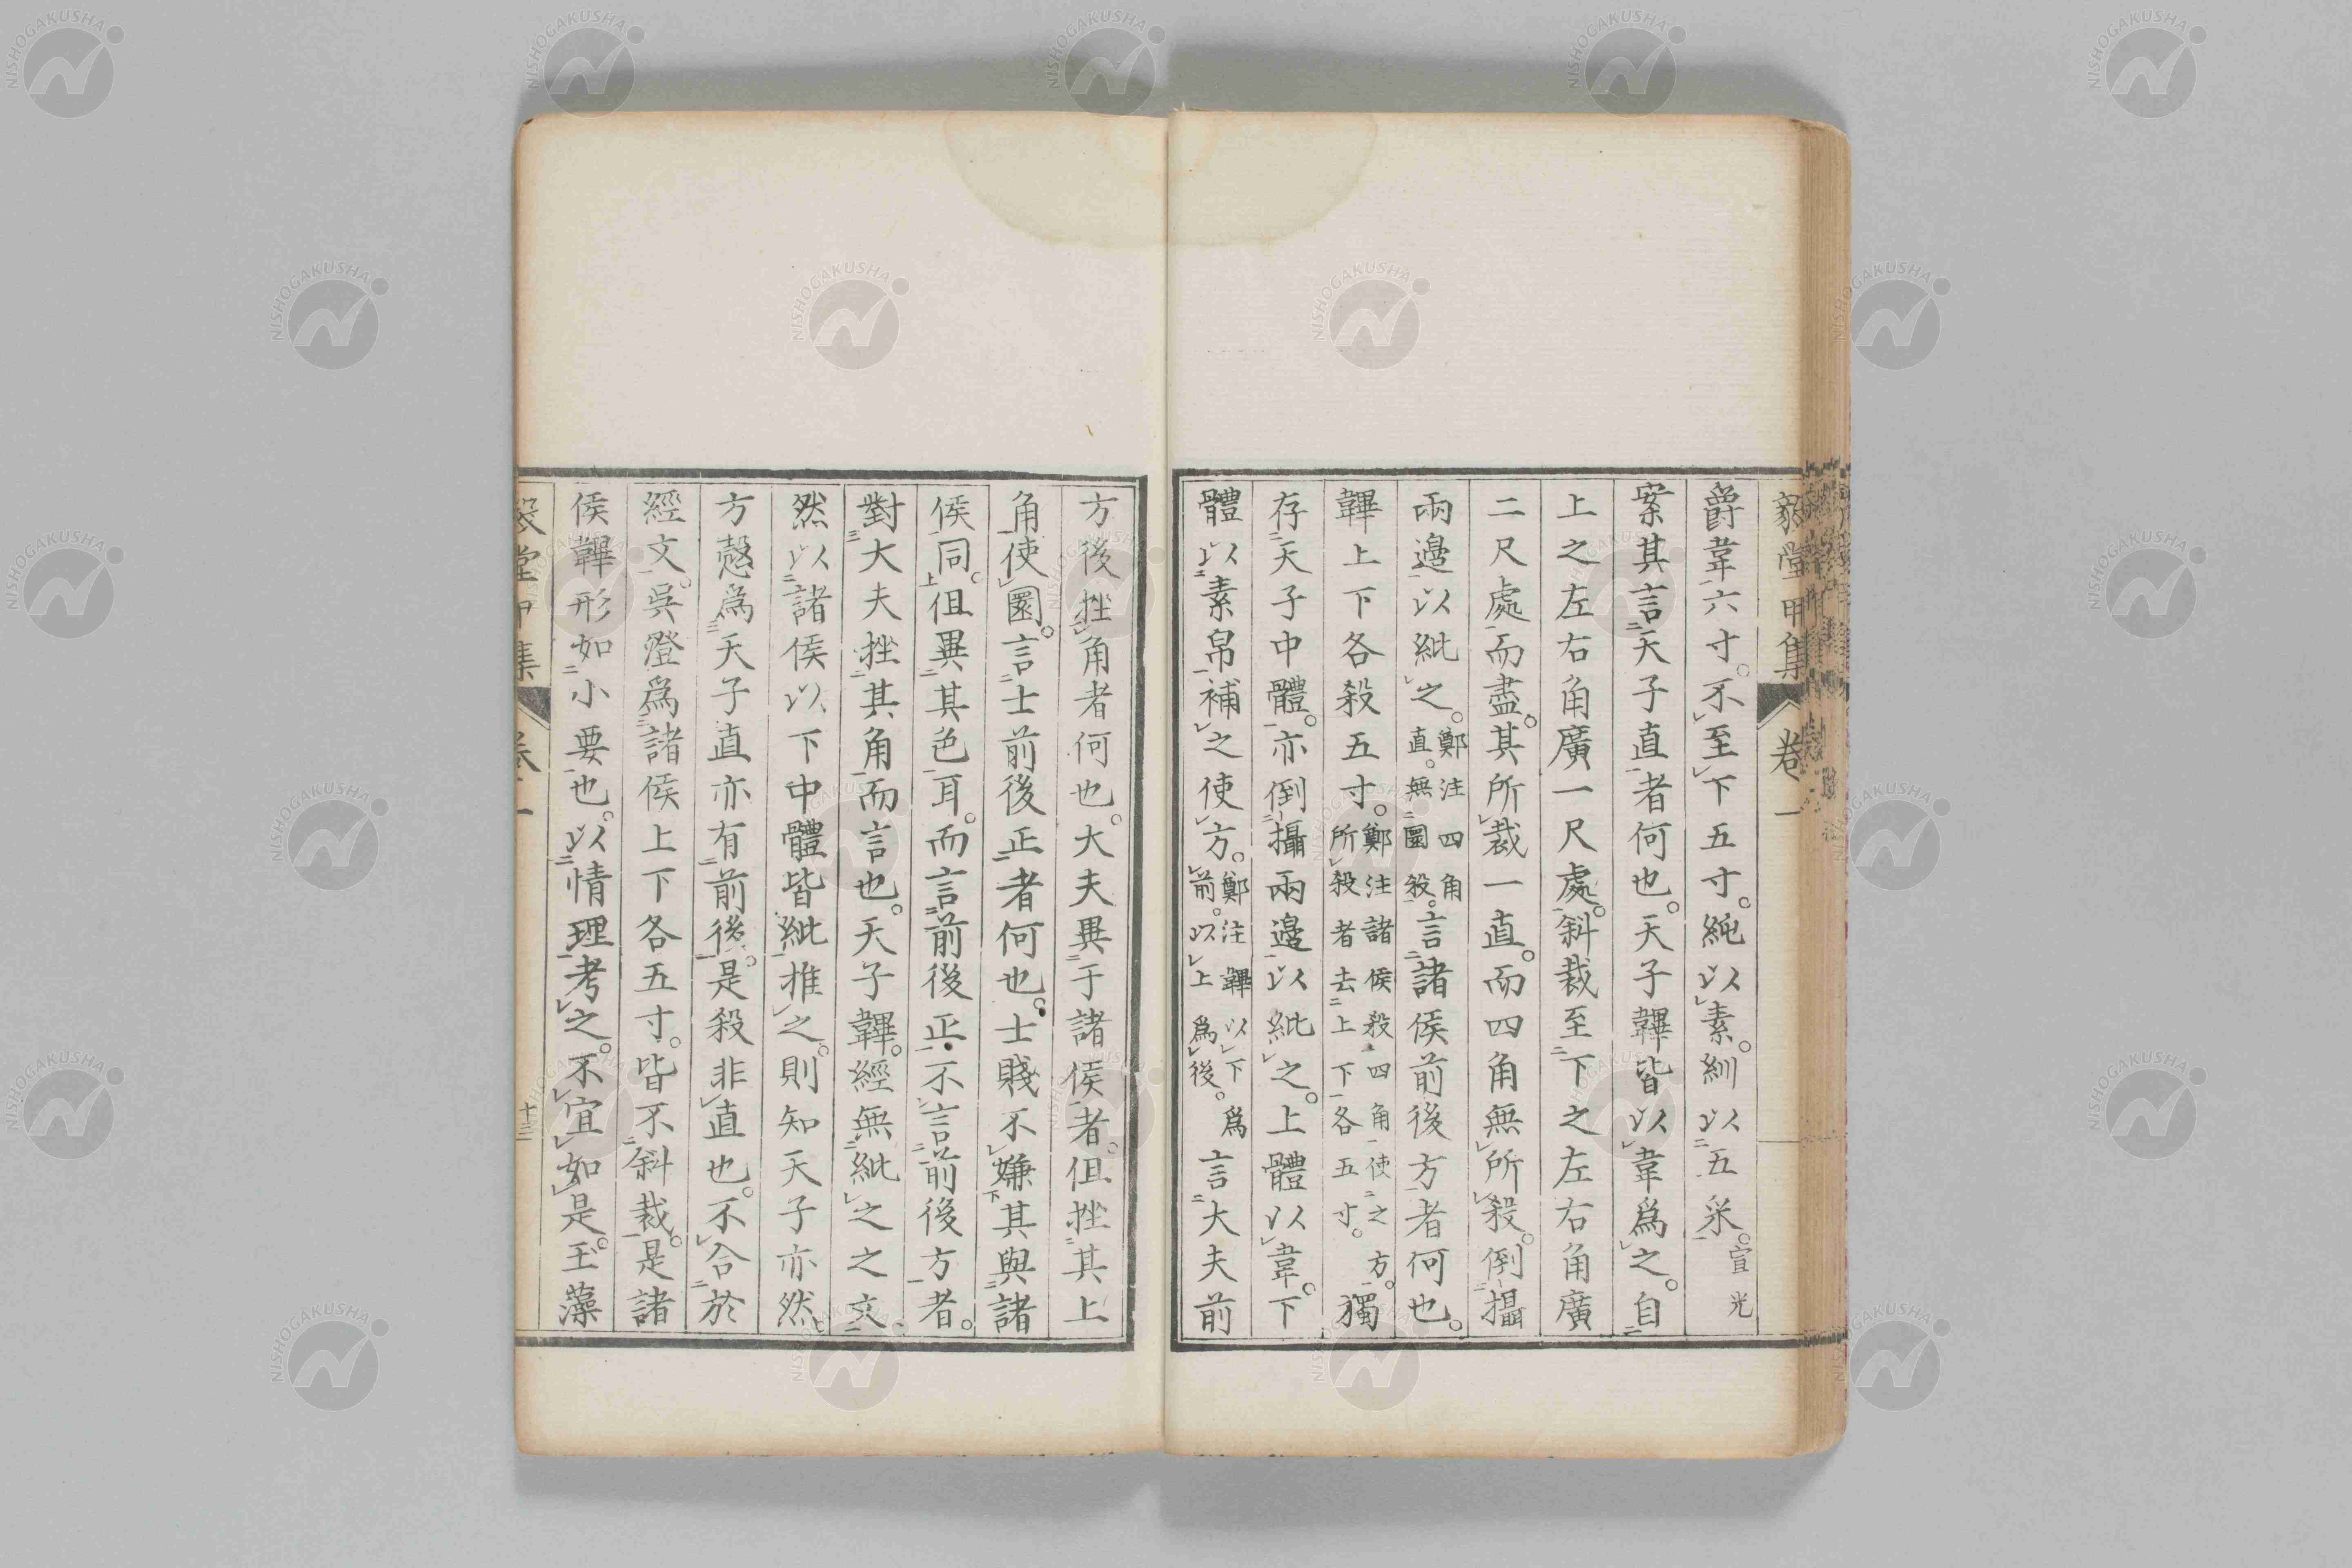 毅堂甲集 卷一
爵韋六寸。不至下五寸。純以素。紃以五采。宣光
案其言天子直者何也。天子韠皆以韋爲之。自
上之左右角廣一尺處。斜裁至下之左右角廣
二尺處而盡。其所裁一直。而四角無所殺。倒攝
兩邊以紕之。鄭注四角直。無圜殺。言諸侯前後方者何也。
韠上下各殺五寸。鄭注諸侯殺四角使之方。所殺者去上下各五寸。獨
存天子中體。亦倒攝兩邊以紕之。上體以韋。下
體以素帛補之使方。鄭注韠以下爲前。以上爲後。言大夫前
方後挫角者何也。大夫異于諸侯者。但挫其上
角使圜。言士前後正者何也。士賤不嫌其與諸
侯同。但異其色耳。而言前後正。不言前後方者。
對大夫挫其角而言也。天子韠。經無紕之之文。
然以諸侯以下中體皆紕推之。則知天子亦然。
方愨爲天子直亦有前後。是殺非直也。不合於
經文。吳澄爲諸侯上下各五寸。皆不斜裁。是諸
侯韠形如小要也。以情理考之。不宜如是。玉藻
毅堂甲集 卷一 十三